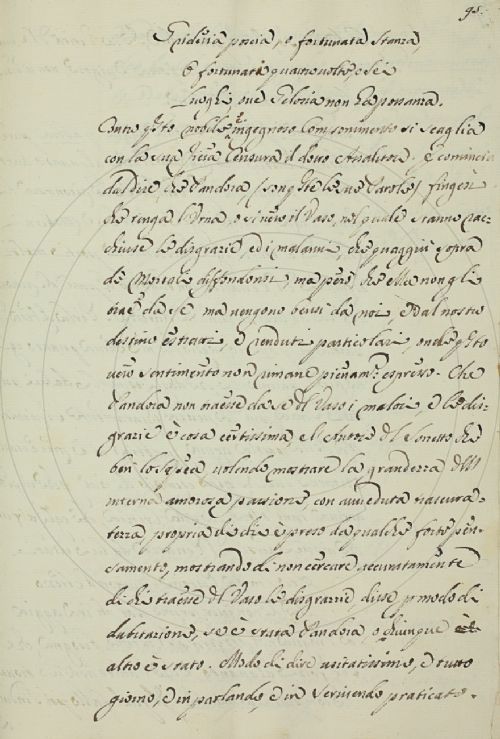 95.
poscia, e fortunata Stanza,
O fortunati quattro volte e sei
Luoghi, ove Gelosia non ha possanza.
Contro q.sto nobile ingegnoso Componimento si scaglia
con la sua Censura il dotto Analista. E comincia
dal dire, che Pandora (son q.ste le sue Parole) fingesi
che tenga l'Urna, o sia il Vaso, nel quale stanno rac-
chiuse le disgrazie, ed i malanni, che quaggiù sopra
de' Mortali diffondonsi, ma però, che ella non gli
trae da se, ma vengono bensì da noi, e dal nostro
destino estratti, e renduti particolari, onde q.sto
vero sentimento non rimane pienam.te espresso. Che
Pandora non traesse da se dal Vaso i malori, e le dis-
grazie è cosa certissima, e l'Autore del Sonetto che
ben lo sapea volendo mostrare la grandezza dell'
interna amorosa passione con avveduta trascura-
tezza propria di chi è preso da qualche forte pen-
samento, mostrando di non cercare accuratamente
di chi traesse dal Vaso le disgrazie disse p modo di
dubitazione, se è stata Pandora, o chiunque
altro è stato. Modo di dire usitatissimo, e tutto
giorno, e in parlando, e in scrivendo praticato.